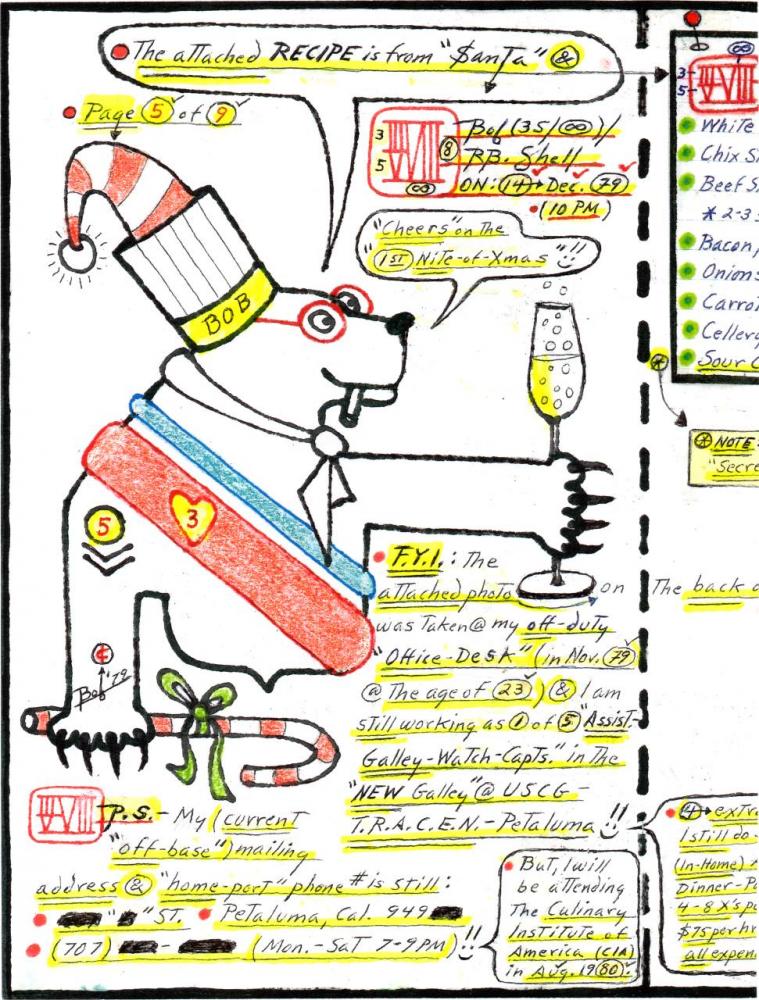 The attached RECIPE is from "$anta" &
Page 5 of 9
3
5
8
∞
Bob (35/∞)/
RB. Shell
ON: 14 Dec. 79
(10 PM)
"Cheers" on the
"1ST Nite-of-Xmas"!!
BOB
5
3
¢
Bob '79
F.Y.I.: The
attached photo on
was taken @ my off-duty
"Office-Desk" (in Nov. 79
@ The age of 23) & I am
still working as 1 of 5 "Assist.-
Galley-Watch-Capts." in the
"NEW Galley" @ USCG-
T.R.A.C.E.N.-Petaluma!!
P.S.- My (current
"off-base") mailing
address & "home-port" phone # is still:
" " ST. Petaluma, Cal. 949
(707) - (Mon.-Sat 7-9PM)!!
But, I will
be attending
The Culinary
Institute of
America (CIA)
in Aug. 1980.
∞
3
5
White
Chix S
Beef S
* 2-3
Bacon,
Onions
Carro
Cellery
Sour C
* NOTE:
"Secre
The back o
4 extr
I still do
(In-Home)
Dinner-P
4-8 X's p
$75 per hr
all expen